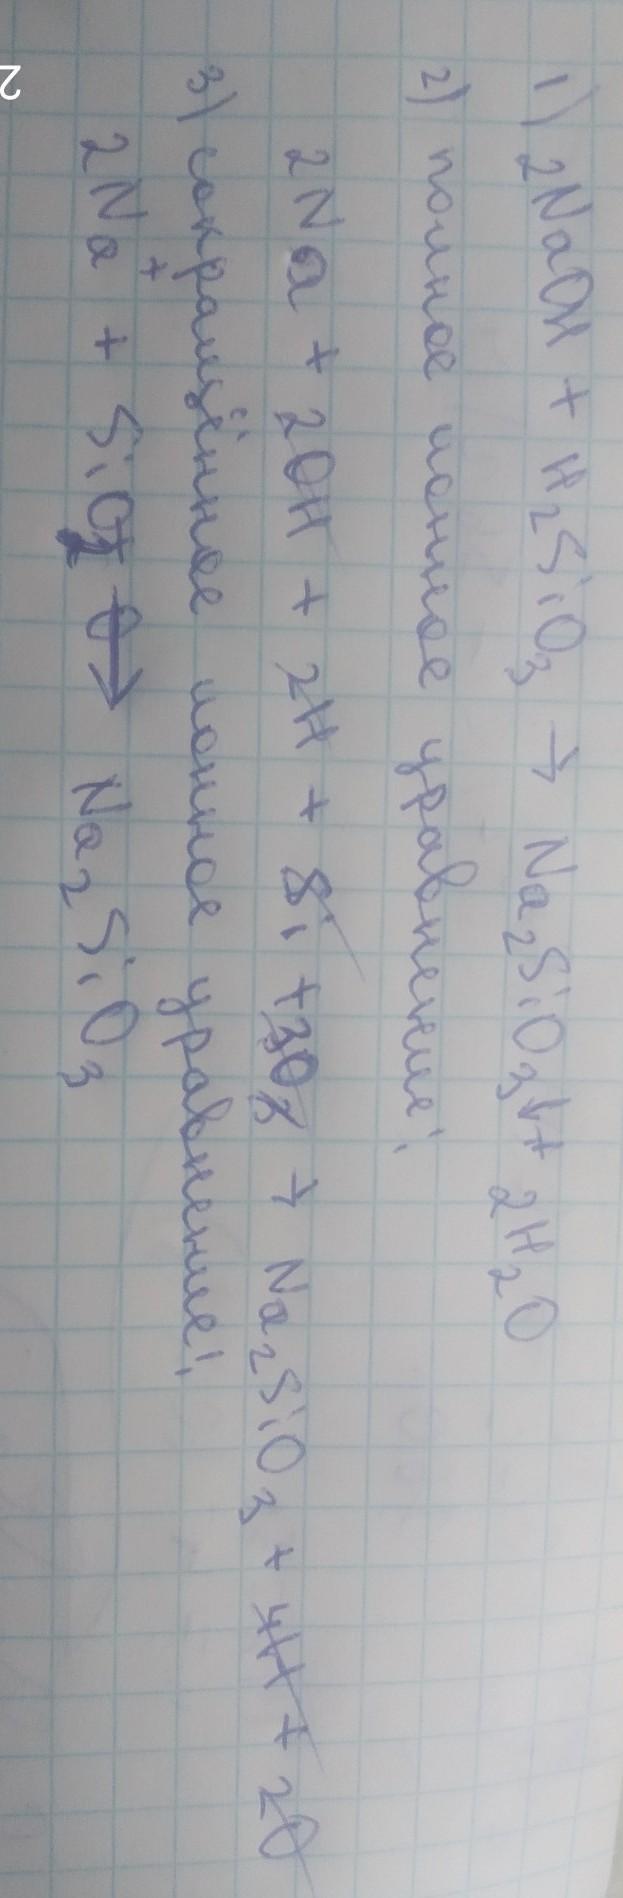 1) 2NaOH + H₂SiO₃ → Na₂SiO₃↓ + 2H₂O
2) полное ионное уравнение:
2Na + 2OH + 2H + Si + 3O → Na₂SiO₃ + 4H + 2O
3) сокращённое ионное уравнение:
2Na⁺ + SiO₃ → Na₂SiO₃
2